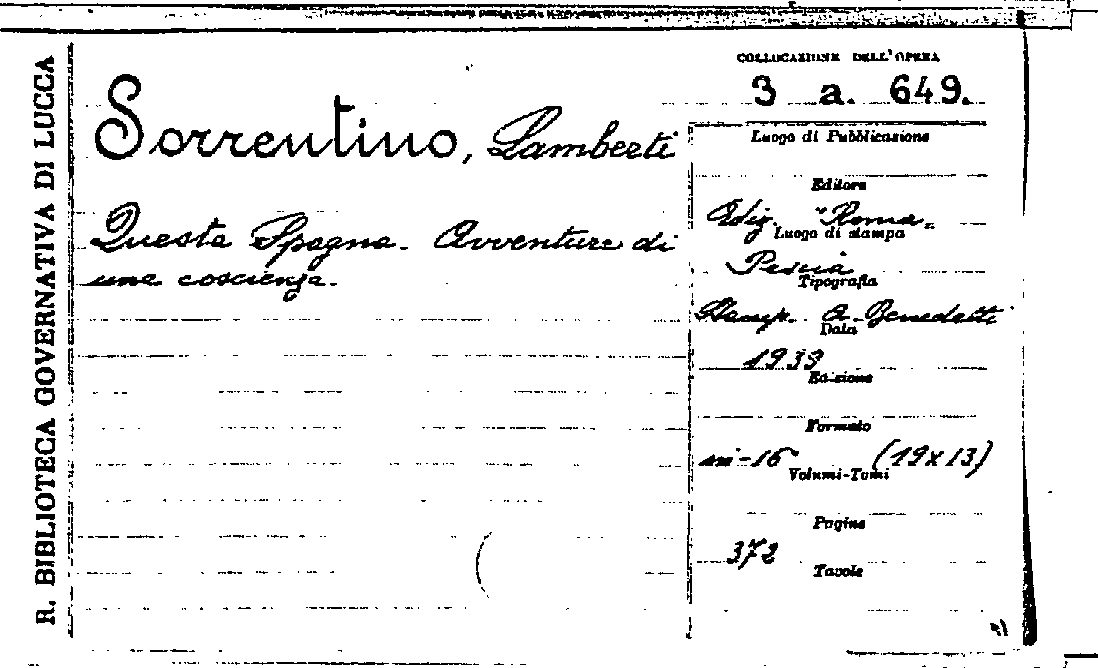 R. BIBLIOTECA GOVERNATIVA DI LUCCA
COLLOCAZIONE DELL'OPERA
3 a. 649.
Sorrentino, Lamberti
Questa Spagna. Avventure di
una coscienza.
Luogo di Pubblicazione
Editore
Ediz. "Roma"
Luogo di stampa
Pescia
Tipografia
Stamp. A. Benedetti
Data
1939
Edizione
Formato
in-16 (19x13)
Volumi-Tomi
Pagine
372
Tavole